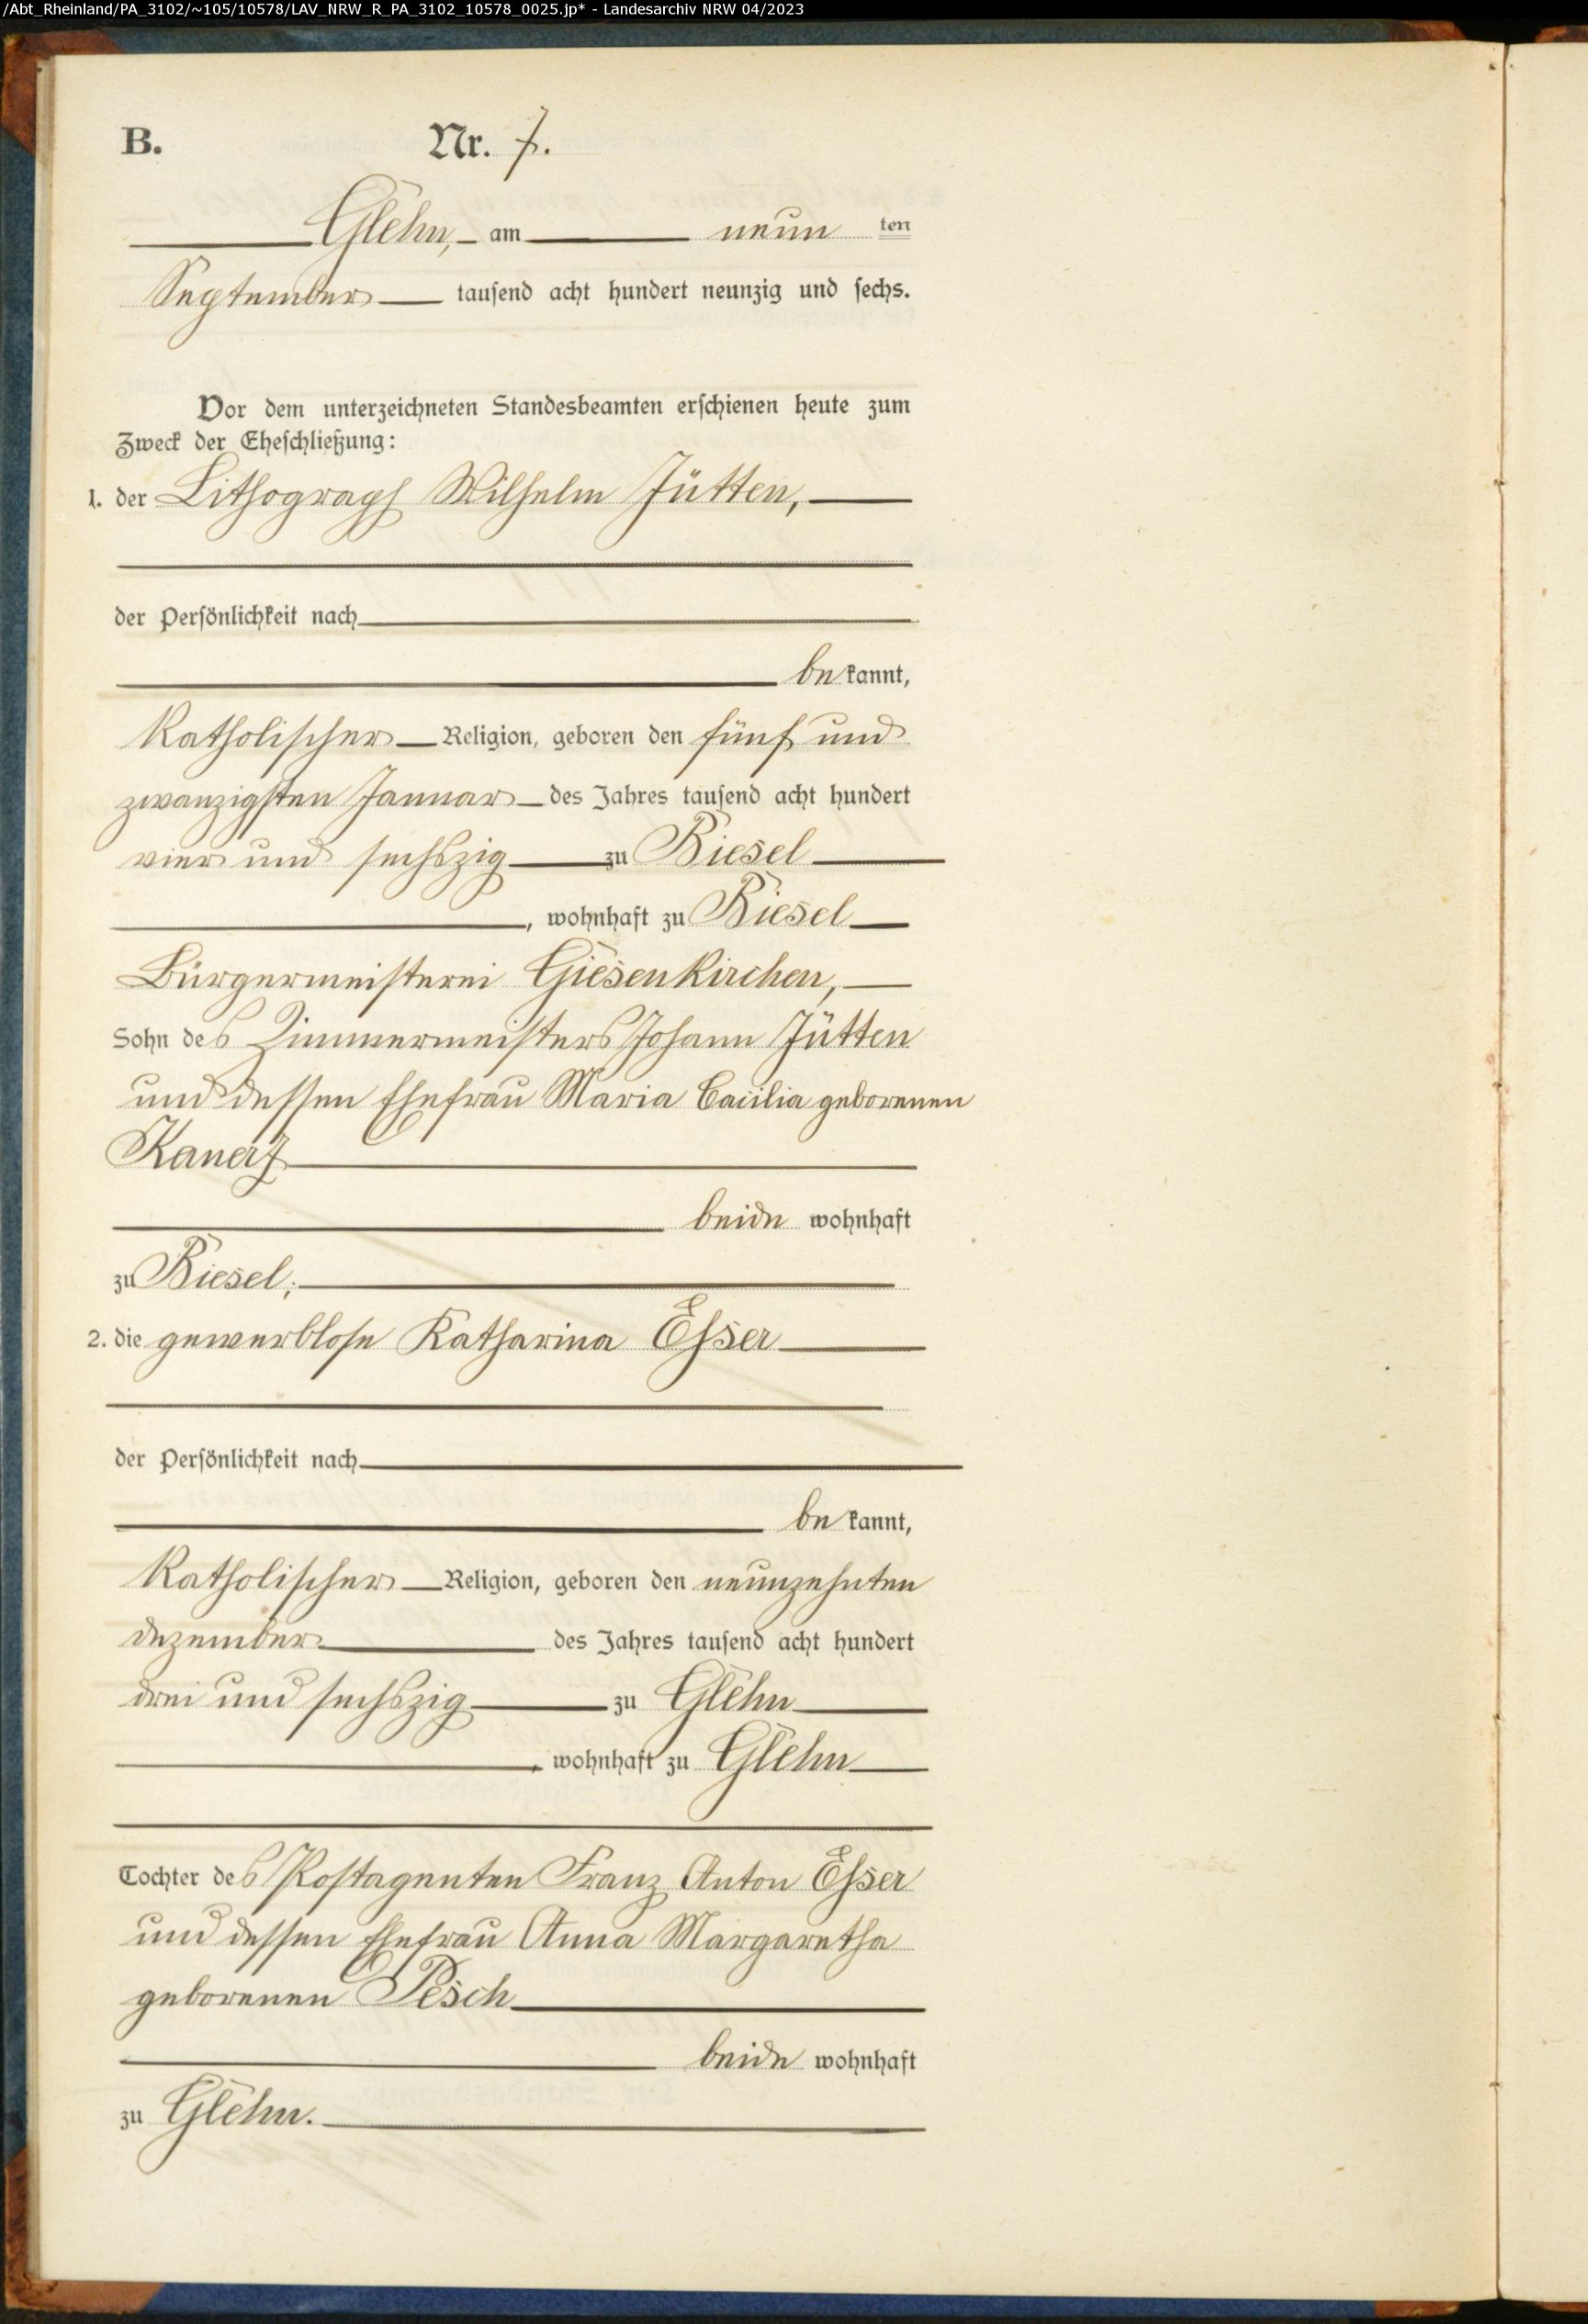 /Abt_Rheinland/PA_3102/~105/10578/LAV_NRW_R_PA_3102_10578_0025.jp* - Landesarchiv NRW 04/2023
B. Nr. 7.
Glehn, am neun ten
September tausend acht hundert neunzig und sechs.
Vor dem unterzeichneten Standesbeamten erschienen heute zum
Zweck der Eheschließung:
1. der Lithograph Wilhelm Jütten,
der Persönlichkeit nach
be kannt,
Katholischer Religion, geboren den fünf und
zwanzigsten Januar des Jahres tausend acht hundert
vier und sechszig zu Biesel
, wohnhaft zu Biesel
Bürgermeisterei Giesenkirchen,
Sohn des Zimmermeisters Johann Jütten
und dessen Ehefrau Maria Cäcilia geborenen
beide wohnhaft
zu Biesel;
2. die gewerblose Katharina Esser
der Persönlichkeit nach
be kannt,
Katholischer Religion, geboren den neunzehnten
Dezember des Jahres tausend acht hundert
drei und sechszig zu Glehn
, wohnhaft zu Glehn
Tochter des Postagenten Franz Anton Esser
und dessen Ehefrau Anna Margaretha
geborenen Pesch
beide wohnhaft
zu Glehn.